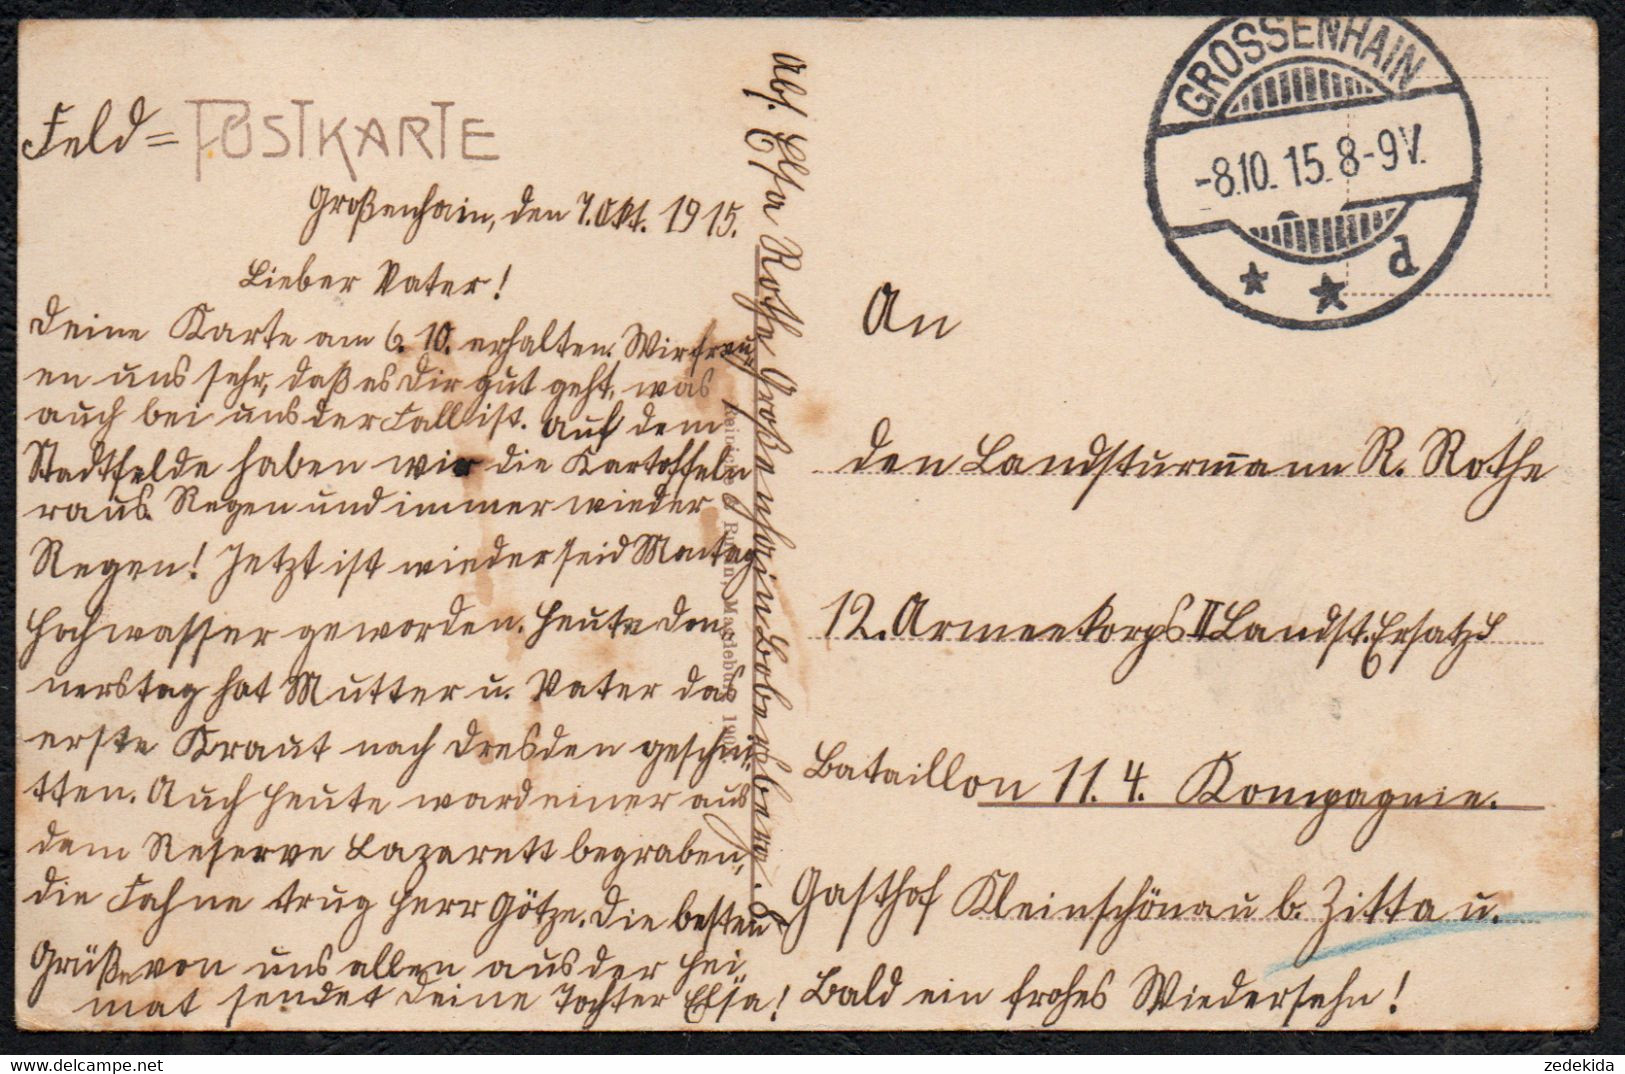 Feld = POSTKARTE
Großenhain, den 7. Okt. 1915.
Lieber Vater!
Deine Karte am 6. 10. erhalten. Wir freu-
en uns sehr, daß es Dir gut geht, was
auch bei uns der Fall ist. Auf dem
Stadtfelde haben wir die Kartoffeln
raus. Regen und immer wieder
Regen! Jetzt ist wieder seid Montag
Hochwasser geworden. Heute Don-
nerstag hat Mutter u. Vater das
erste Kraut nach Dresden geschni-
tten. Auch heute ward einer aus
dem Reserve Lazarett begraben,
die Fahne trug Herr Götze. Die besten
Grüße von uns allen aus der Hei-
mat sendet Deine Tochter Elsa!
Abs. Elsa Rothe Großenhain Bobersberg. 6
Magdeburg
GROSSENHAIN
-8.10. 15. 8-9V.
* * d
An
den Landsturmmann R. Rothe
12. Armeekorps II Landst. Ersatz
Bataillon 11. 4. Kompagnie.
Gasthof Kleinschönau b. Zitta u.
Bald ein frohes Wiedersehn!
zedekida